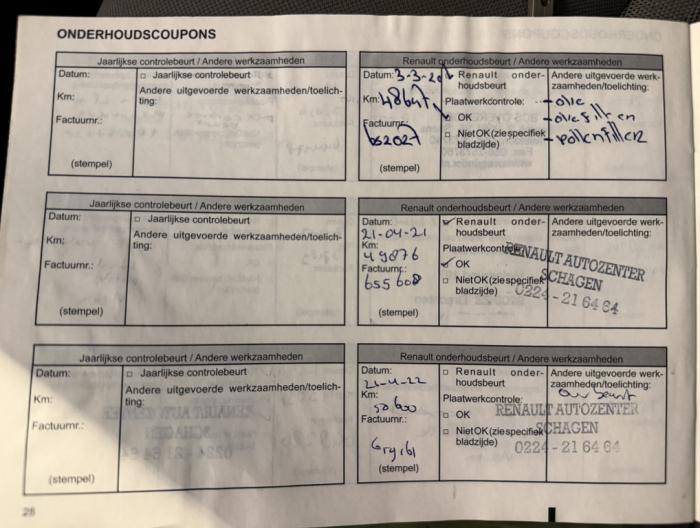 ONDERHOUDSCOUPONS
Jaarlijkse controlebeurt / Andere werkzaamheden
Datum:
□ Jaarlijkse controlebeurt
Km:
Andere uitgevoerde werkzaamheden/toelich-
ting:
Factuurnr.:
(stempel)
Renault onderhoudsbeurt / Andere werkzaamheden
Datum: 3-3-20
Renault onder-
houdsbeurt
Km:
Plaatwerkcontrole:
OK
Factuurnr.:
bs2027
□ Niet OK (zie specifiek
bladzijde)
(stempel)
Andere uitgevoerde werk-
zaamheden/toelichting:
- olie
- olie filt en
- pollenfilter
Jaarlijkse controlebeurt / Andere werkzaamheden
Datum:
□ Jaarlijkse controlebeurt
Km:
Andere uitgevoerde werkzaamheden/toelich-
ting:
Factuurnr.:
(stempel)
Renault onderhoudsbeurt / Andere werkzaamheden
Datum:
21-04-21
Km:
49876
Factuurnr.:
655608
(stempel)
Renault onder-
houdsbeurt
Plaatwerkcontrole
OK
□ Niet OK (zie specifiek
bladzijde)
Andere uitgevoerde werk-
zaamheden/toelichting:
RENAULT AUTOZENTER
SCHAGEN
0224 - 21 64 64
Jaarlijkse controlebeurt / Andere werkzaamheden
Datum:
□ Jaarlijkse controlebeurt
Km:
Andere uitgevoerde werkzaamheden/toelich-
ting:
Factuurnr.:
(stempel)
Renault onderhoudsbeurt / Andere werkzaamheden
Datum:
21-4-22
Km:
50600
Factuurnr.:
(stempel)
□ Renault onder-
houdsbeurt
Plaatwerkcontrole:
□ OK
□ Niet OK (zie specifiek
bladzijde)
Andere uitgevoerde werk-
zaamheden/toelichting:
beurt
RENAULT AUTOZENTER
SCHAGEN
0224 - 21 64 64
28